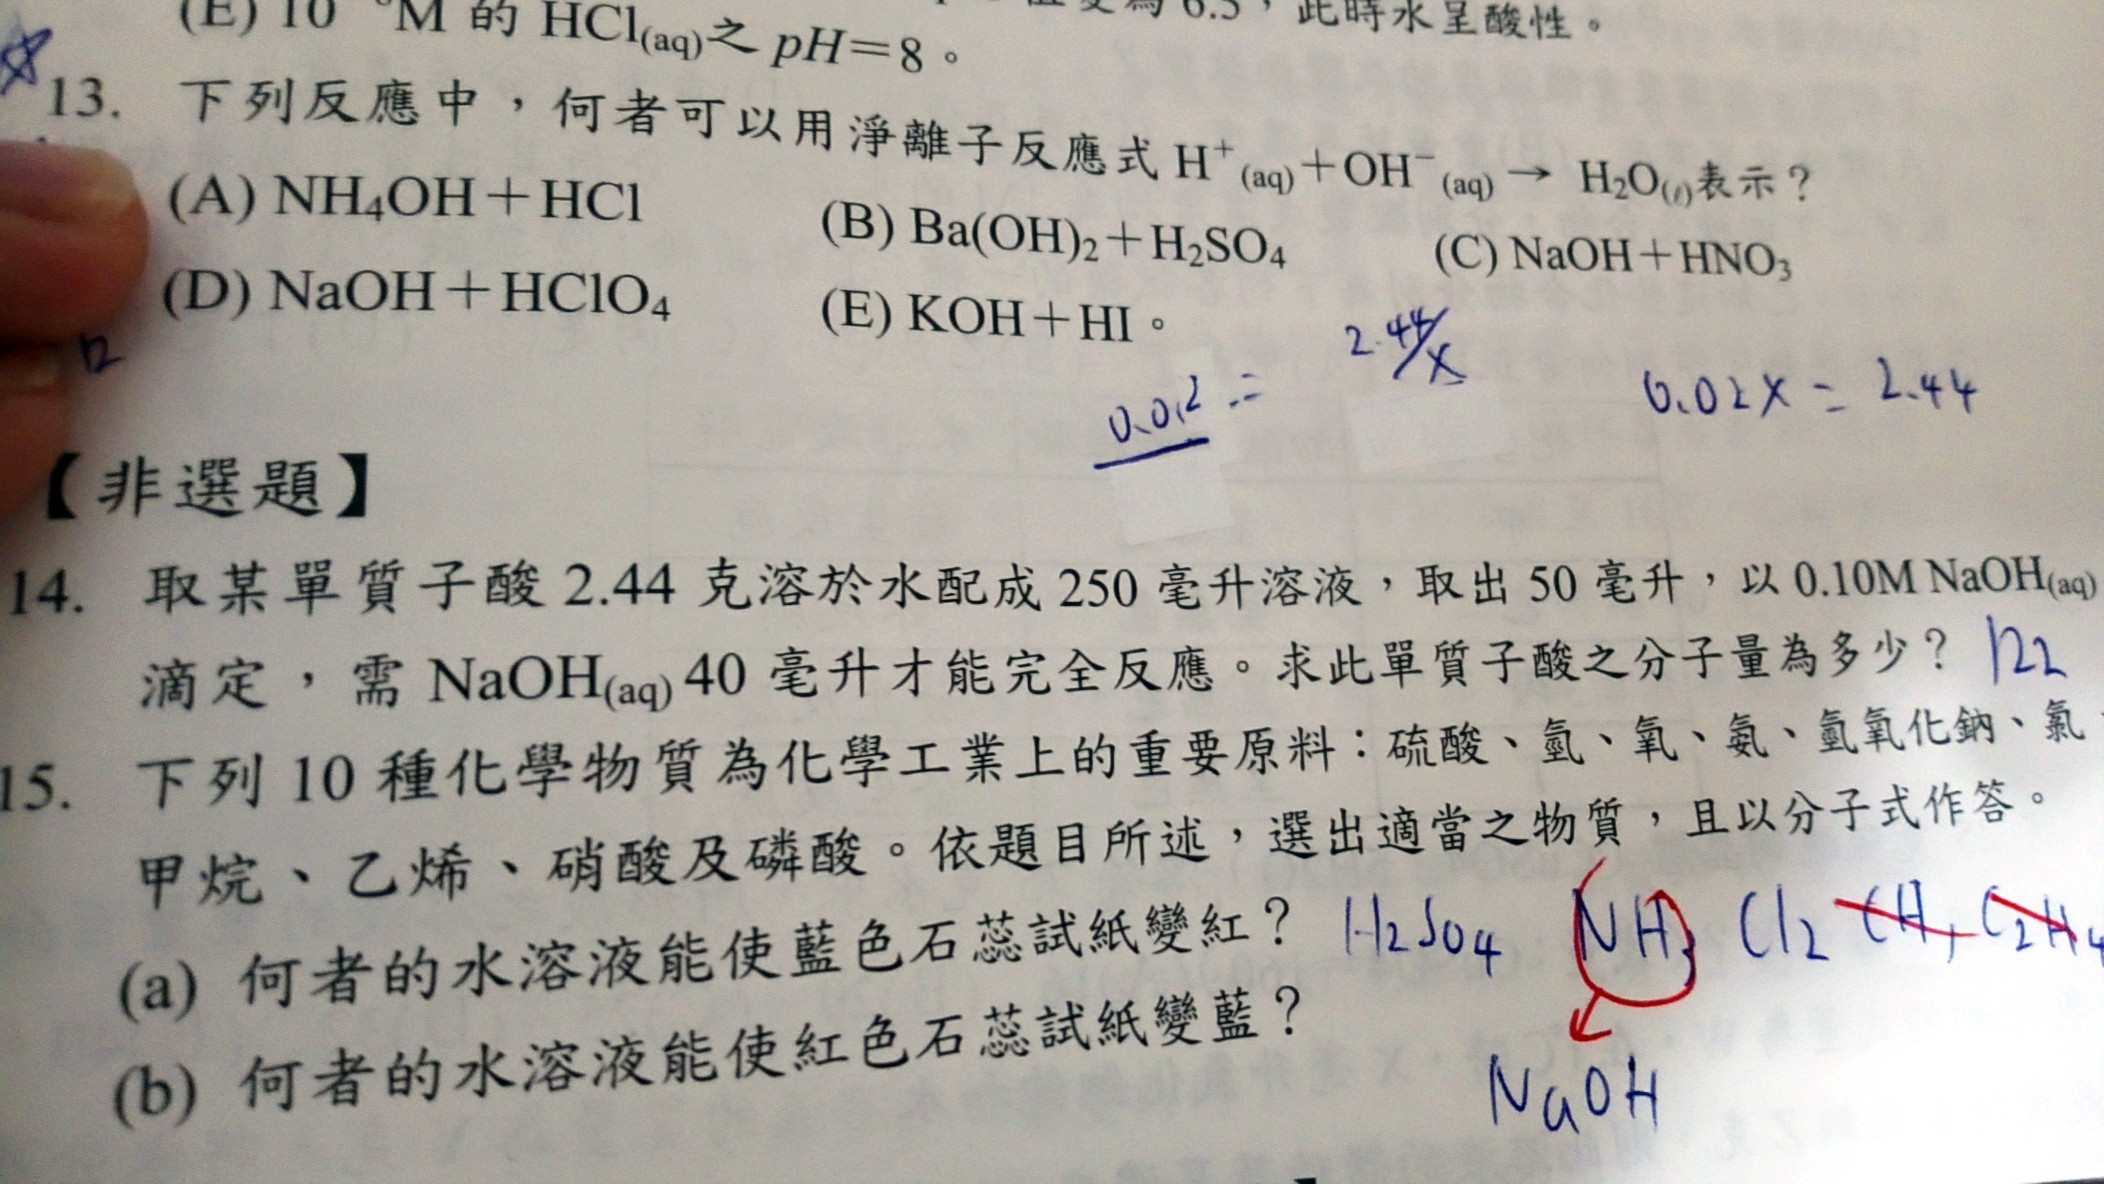 (E) 10 M 的 HCl(aq)之 pH=8。 6.5，此時水呈酸性。
13. 下列反應中，何者可以用淨離子反應式 H⁺(aq)+OH⁻(aq)→ H₂O(ℓ)表示？
(A) NH₄OH+HCl (B) Ba(OH)₂+H₂SO₄ (C) NaOH+HNO₃
(D) NaOH+HClO₄ (E) KOH+HI。
2.44/x
0.02 = 0.02x = 2.44
【非選題】
14. 取某單質子酸 2.44 克溶於水配成 250 毫升溶液，取出 50 毫升，以 0.10M NaOH(aq)
滴定，需 NaOH(aq) 40 毫升才能完全反應。求此單質子酸之分子量為多少？ 122
15. 下列 10 種化學物質為化學工業上的重要原料：硫酸、氫、氧、氨、氫氧化鈉、氯、
甲烷、乙烯、硝酸及磷酸。依題目所述，選出適當之物質，且以分子式作答。
(a) 何者的水溶液能使藍色石蕊試紙變紅？ H₂SO₄ NH₃ Cl₂ CH₄ C₂H₄
(b) 何者的水溶液能使紅色石蕊試紙變藍？
NaOH